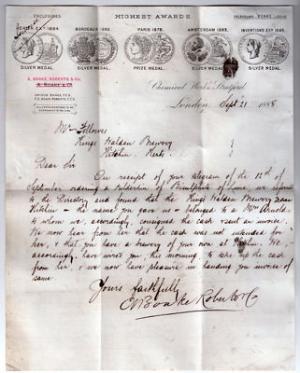 HIGHEST AWARDS.
BORDEAUX 1882.
PARIS 1878.
AMSTERDAM 1883.
INVENTIONS EXN 1885.
SILVER MEDAL.
SILVER MEDAL.
PRIZE MEDAL.
SILVER MEDAL.
SILVER MEDAL.
A. BOAKE, ROBERTS & Co.
Chemical Works, Stratford,
London, Sept 21 1888
Mr Fellows
Kings Walden Brewery
Hitchin Herts
Dear Sir
On receipt of your telegram of the 12th of
September ordering a of Bisulphite of lime, we referred
to the Directory and found that the Kings Walden Brewery near
Hitchin - the name you gave us - belonged to a Mrs Arnold,
to whom we, accordingly, consigned the cask & sent an invoice.
We now hear from her that the cask was not intended for
her, & that you have a brewery of your own at Hitchin. We,
accordingly, have wired you this morning to take up the cask
from her, & we now have pleasure in handing you invoice of
same
Yours faithfully
A Boake Roberts & Co